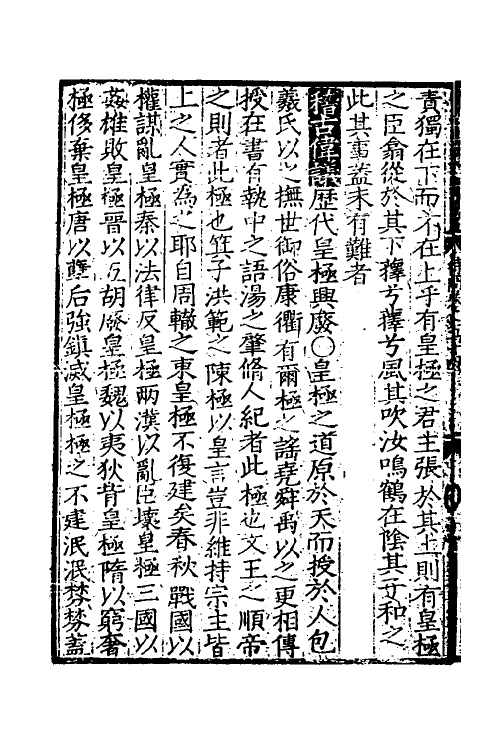 責獨在下而不在上乎有皇極之君主張於其上則有皇極
之臣翕從於其下蘀兮蘀兮風其吹汝鳴鶴在陰其子和之
此其事蓋未有難者
稽古偉議歷代皇極興廢〇皇極之道原於天而授於人包
羲氏以之撫世御俗康衢有爾極之謠堯舜禹以之更相傳
授在書有執中之語湯之肇脩人紀者此極也文王之順帝
之則者此極也箕子洪範之陳極以皇言豈非維持宗主皆
上之人實為之耶自周轍之東皇極不復建矣春秋戰國以
權謀亂皇極秦以法律反皇極兩漢以亂臣壞皇極三國以
姦雄敗皇極晉以五胡廢皇極魏以夷狄背皇極隋以窮奢
極侈棄皇極唐以豔后強鎮滅皇極極之不建泯泯棼棼蓋